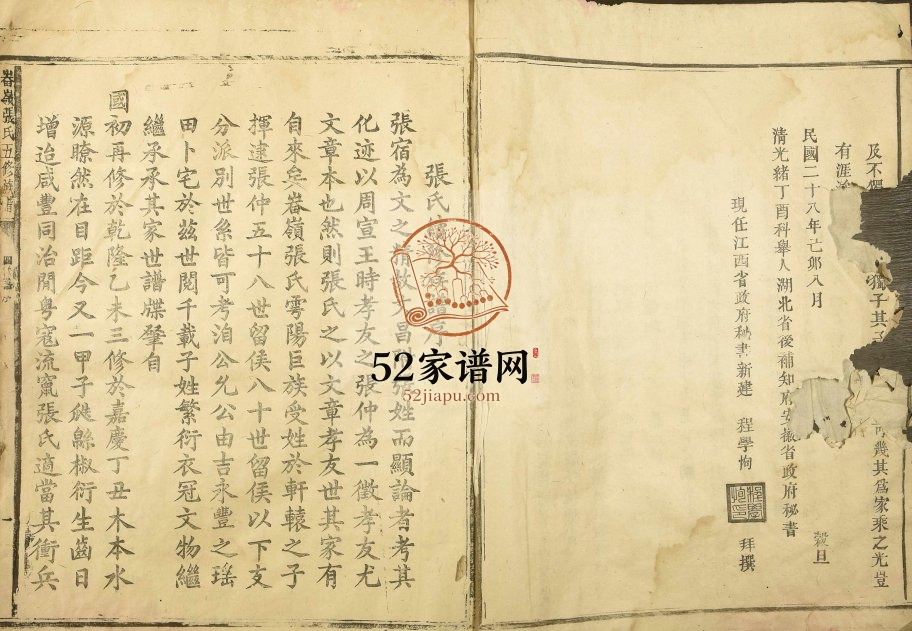 及不獨
獨子其子
幾其為家乘之光豈
有涯
民國二十八年亡卯八月
穀旦
清光緒丁酉科舉人湖北省後補知府安徽省政府秘書
現任江西省政府秘書新建 程學恂
拜撰
張氏
序
張宿為文之精故文昌
張姓而顯論者考其
化迹以周宣王時孝友之張仲為一徵孝友尤
文章本也然則張氏之以文章孝友世其家有
自來矣畚嶺張氏雩陽巨族受姓於軒轅之子
揮逮張仲五十八世留侯八十世留侯以下支
分派別世系皆可考洎公允公由吉永豐之瑤
田卜宅於茲世閱千載子姓繁衍衣冠文物繼
繼承承其家世譜牒肇自
國初再修於乾隆乙未三修於嘉慶丁丑木本水
源瞭然在目距今又一甲子瓞緜椒衍生齒日
增迨咸豐同治間粵寇流竄張氏適當其衝兵
畚嶺張氏五修族譜
一
52家谱网
52jiapu.com